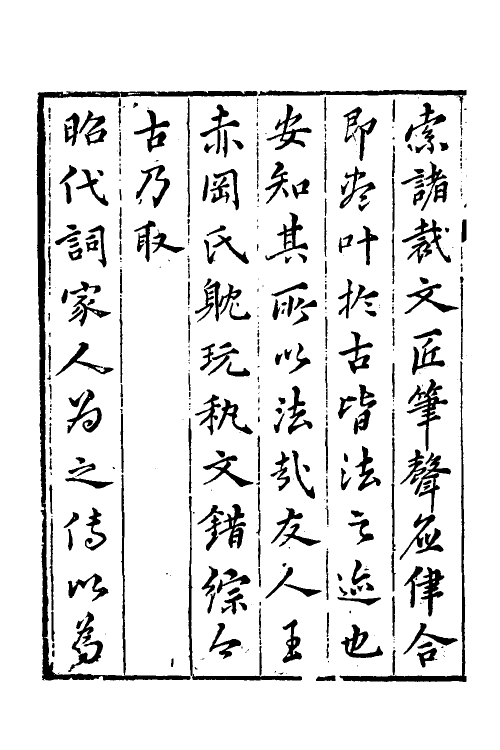 索諸裁文匠筆聲並律合
即悉叶於古皆法之迹也
安知其所以法哉友人王
赤岡氏躭玩秇文錯綜今
古乃取
昭代詞家人為之傳以為